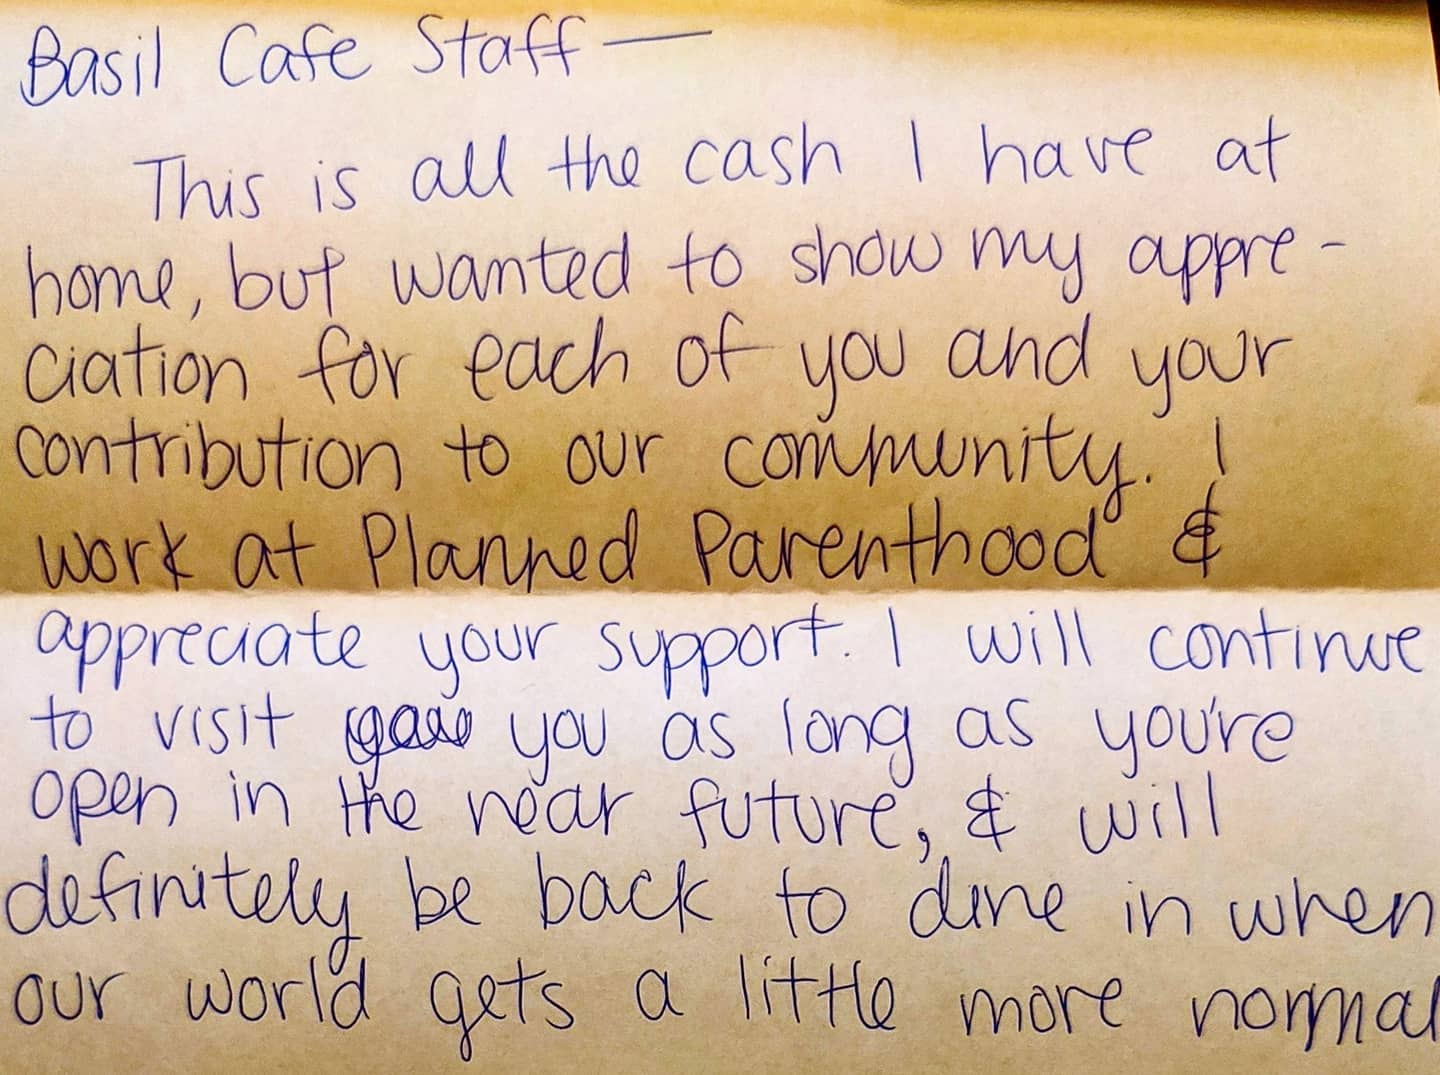 Basil Cafe Staff —
This is all the cash I have at
home, but wanted to show my appre-
ciation for each of you and your
contribution to our community. I
work at Planned Parenthood &
appreciate your support. I will continue
to visit you as long as you're
open in the near future, & will
definitely be back to dine in when
our world gets a little more normal